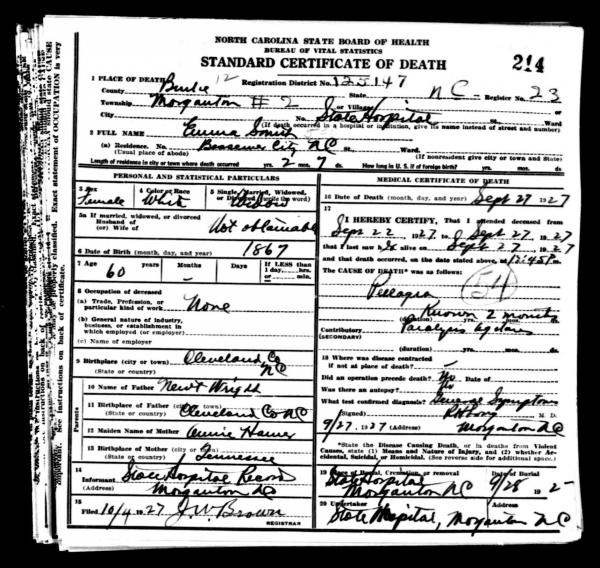 NORTH CAROLINA STATE BOARD OF HEALTH
BUREAU OF VITAL STATISTICS
STANDARD CERTIFICATE OF DEATH
214
1 PLACE OF DEATH
County Burke 12 Registration District No. State NC Register No. 23
Township Morganton # 2 or Village
City No. State Hospital St. Ward
(If death occurred in a hospital or institution, give its name instead of street and number)
2 FULL NAME Emma
(a) Residence. No. Bessemer City NC St. Ward
(Usual place of abode) (If nonresident give city or town and State)
Length of residence in city or town where death occurred yrs. 2 mos. 7 ds. How long in U. S. if of foreign birth? yrs. mos. ds.
PERSONAL AND STATISTICAL PARTICULARS
3 Sex Female
4 Color or Race White
5 Single, Married, Widowed, or Divorced (write the word) Widow
5a If married, widowed, or divorced
Husband of
(or) Wife of Not obtainable
6 Date of Birth (month, day, and year) 1867
7 Age 60 Years Months Days If LESS than 1 day, hrs. or min.
8 Occupation of deceased
(a) Trade, Profession, or particular kind of work None
(b) General nature of industry, business, or establishment in which employed (or employer)
(c) Name of employer
9 Birthplace (city or town) Cleveland Co
(State or country) NC
Parents
10 Name of Father Newt Wright
11 Birthplace of Father (city or town)
(State or country) Cleveland Co NC
12 Maiden Name of Mother Annie
13 Birthplace of Mother (city or town)
(State or country) Tennessee
14 Informant State Hospital Record
(Address) Morganton NC
15 Filed 10/4 1927 J. W. Brown
REGISTRAR
MEDICAL CERTIFICATE OF DEATH
16 Date of Death (month, day, and year) Sept 27 1927
17 I HEREBY CERTIFY, That I attended deceased from
Sept 22 1927 to Sept 27 1927
that I last saw alive on Sept 27 1927
and that death occurred, on the date stated above, at 12:45 P m.
The CAUSE OF DEATH* was as follows:
Pellagra (54)
Known 2 months
(duration) yrs. mos. ds.
Contributory Paralysis
(SECONDARY)
(duration) yrs. mos. ds.
18 Where was disease contracted
if not at place of death?
Did an operation precede death? No Date of
Was there an autopsy? No
What test confirmed diagnosis? Symptoms
(Signed) M. D.
9/27 1927 (Address) Morganton NC
*State the Disease Causing Death, or in deaths from Violent Causes, state (1) Means and Nature of Injury, and (2) whether Accidental, Suicidal, or Homicidal. (See reverse side for additional space.)
19 Place of Burial, Cremation, or removal Date of Burial
State Hospital
Morganton NC 9/28 192
20 Undertaker Address
State Hospital, Morganton NC